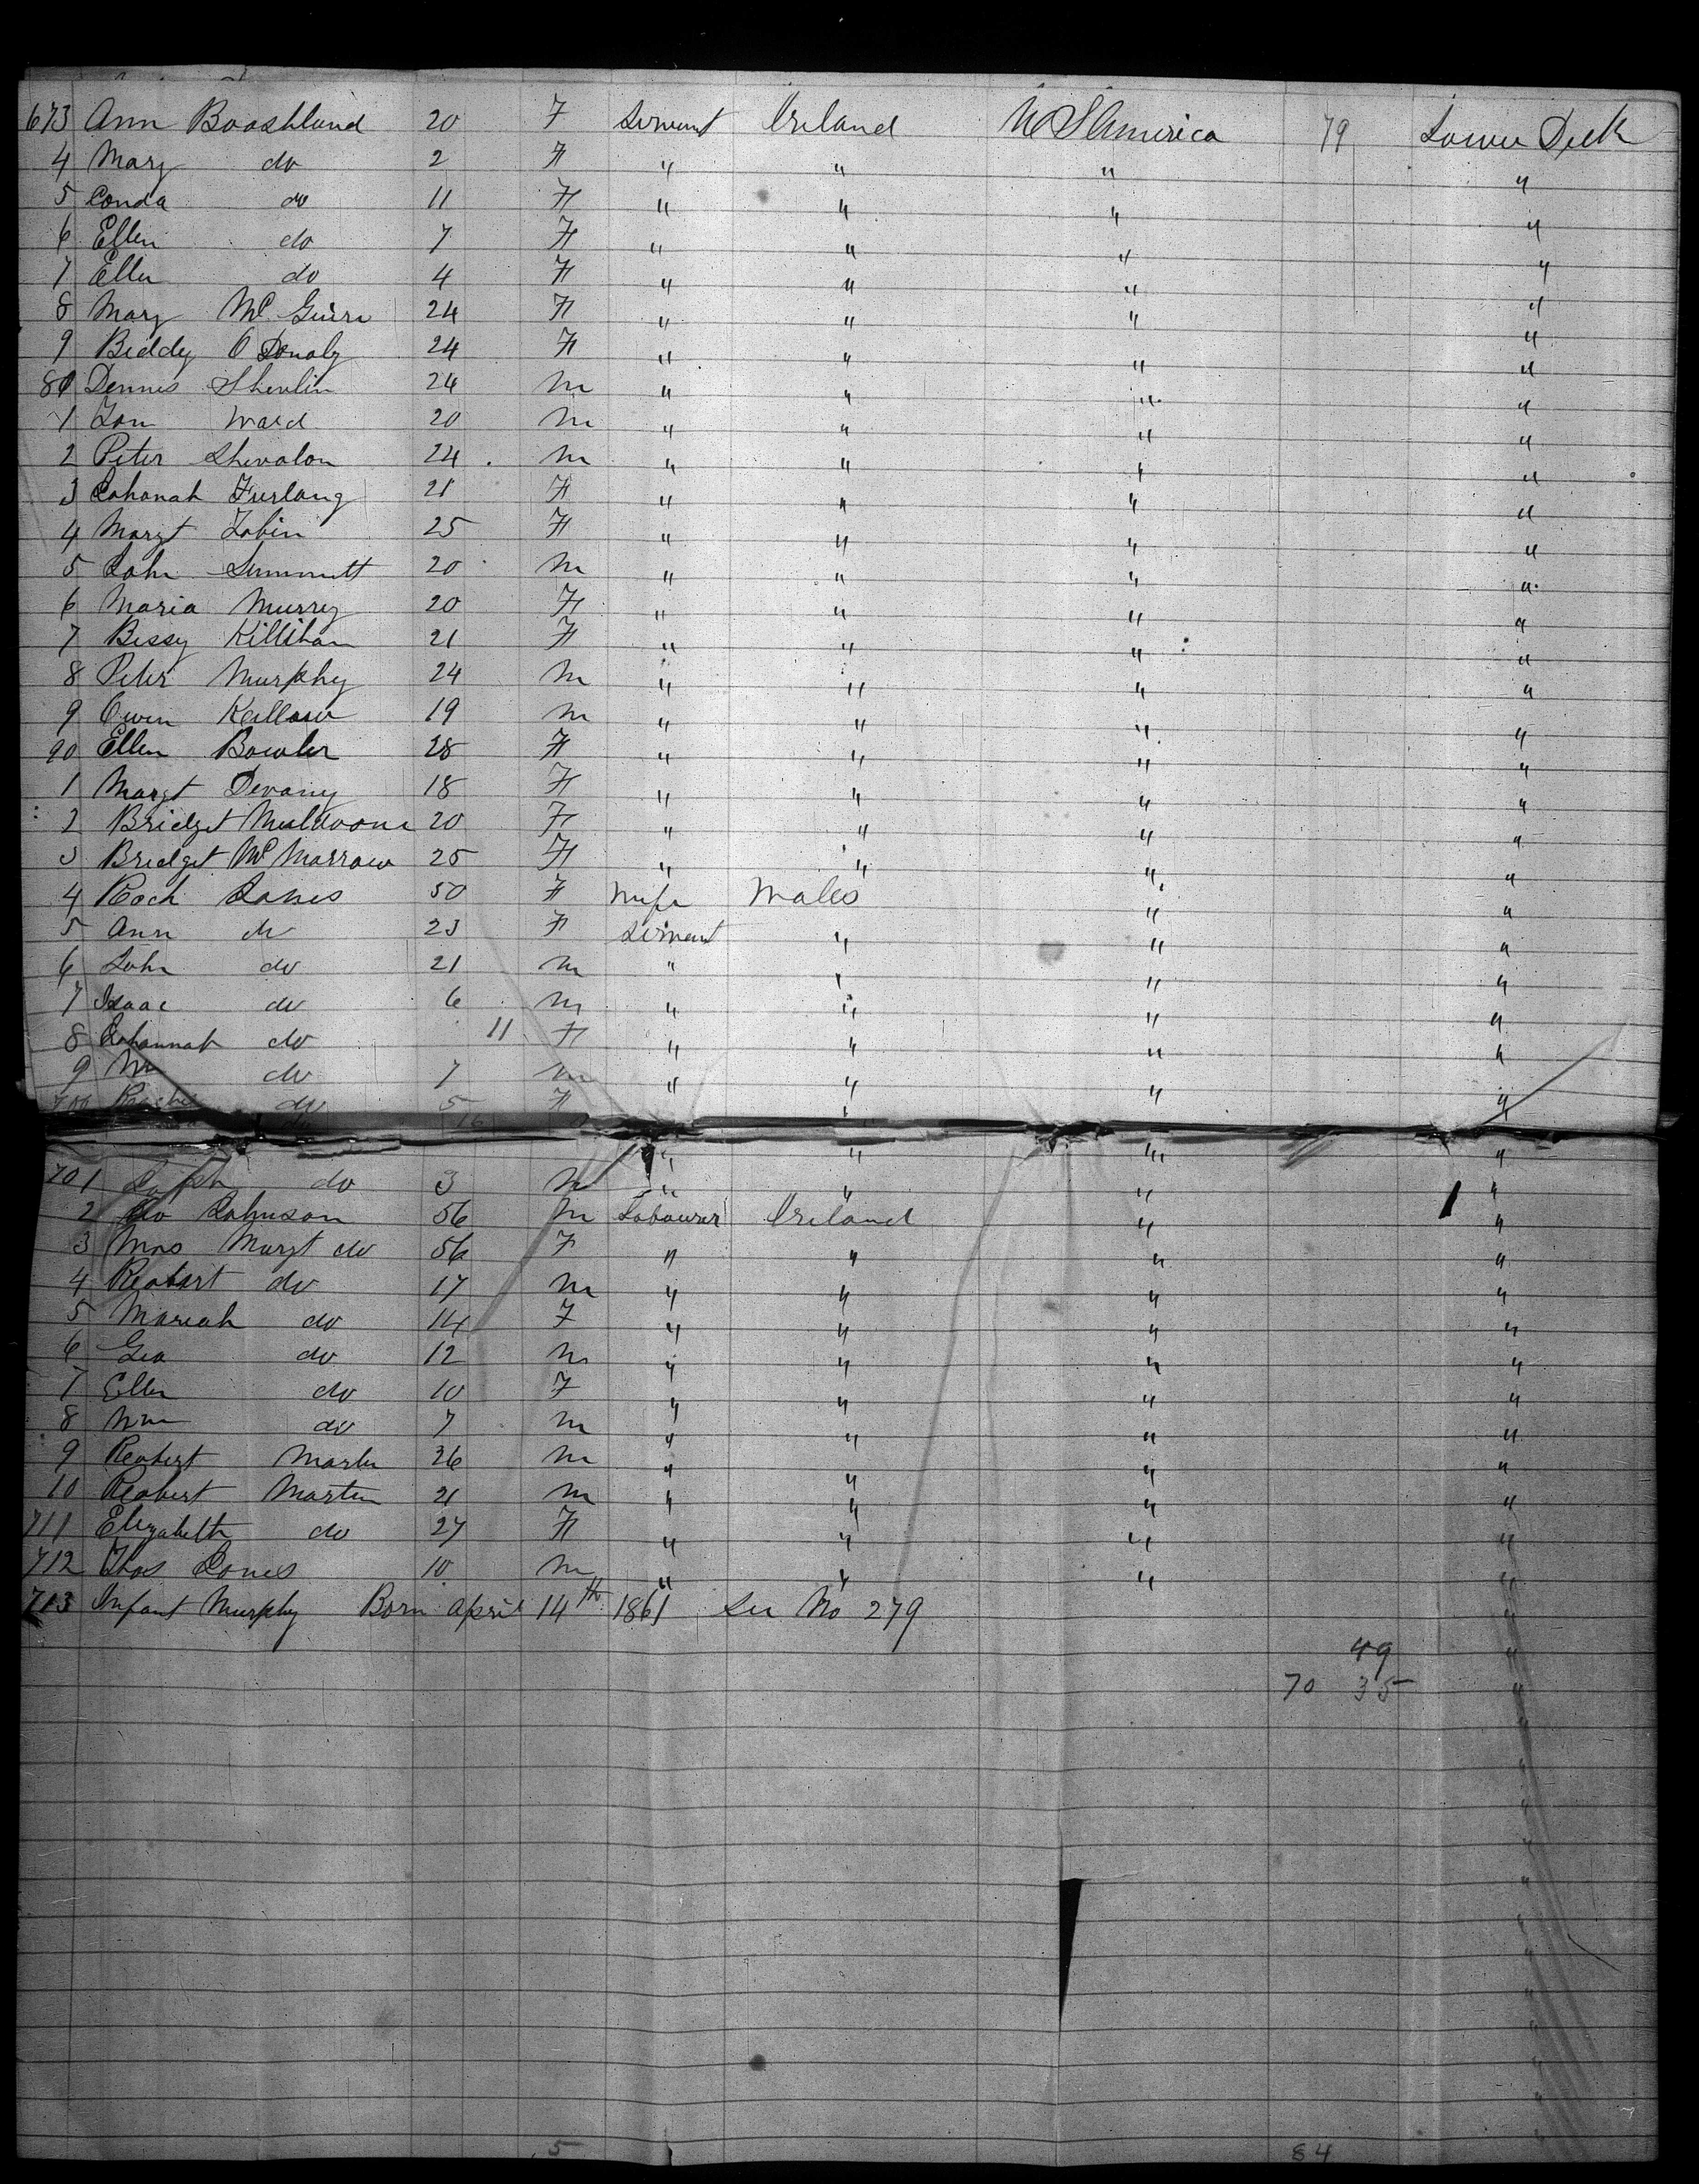 673 Ann Boashland 20 F Servant Ireland U S America 79 Lower Deck
4 Mary do 2 F " " " "
5 Conda do 11 F " " " "
6 Ellen do 7 F " " " "
7 Ellen do 4 F " " " "
8 Mary Mc Guire 24 F " " " "
9 Biddy O Donaly 24 F " " " "
80 Dennis Shevlin 24 m " " " "
1 Tom Ward 20 m " " " "
2 Peter Shevalon 24 m " " " "
3 Johanah Furlong 21 F " " " "
4 Margt Tobin 25 F " " " "
5 John Summitt 20 m " " " "
6 Maria Murrey 20 F " " " "
7 Bessy Killihan 21 F " " " "
8 Peter Murphy 24 m " " " "
9 Owen Kallow 19 m " " " "
90 Ellen Bowler 28 F " " " "
1 Margt Devany 18 F " " " "
2 Bridget Muldoone 20 F " " " "
3 Bridget Mc Marrow 25 F " " " "
4 Jones 50 F Wife Wales " "
5 Ann do 23 F Servant " " "
6 John do 21 m " " " "
7 Isaac do 6 m " " " "
8 Johannah do 11 F " " " "
9 do 7 m " " " "
700 do 5 F " " " "
701 Joseph do 3 m " " " "
2 Johnson 56 m Labourer Ireland " "
3 Mrs Margt do 56 F " " " "
4 Reobart do 17 m " " " "
5 Mariah do 14 F " " " "
6 Geo do 12 m " " " "
7 Ellen do 10 F " " " "
8 Wm do 7 m " " " "
9 Reobert Martin 26 m " " " "
10 Reobert Martin 21 m " " " "
711 Elizabeth do 27 F " " " "
712 Thos Jones 10 m " " " "
713 Infant Murphy Born April 14th 1861 See No 279
49
70 35
5 84